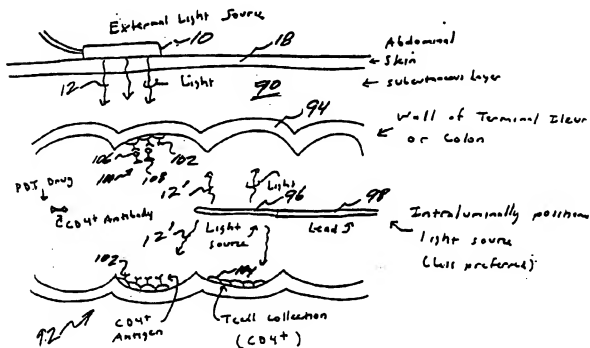 External Light Source
10
18
Abdominal
Skin
Subcutaneous Layer
12
Light
90
94
Wall of Terminal Ileum
or Colon
106
102
108
PDT Drug
CD4+ Antibody
12'
Light
96
98
12'
Light
source
Lead
Intraluminally position
light source
(less preferred)
102
104
CD4+
Antigen
Tcell collection
(CD4+)
92